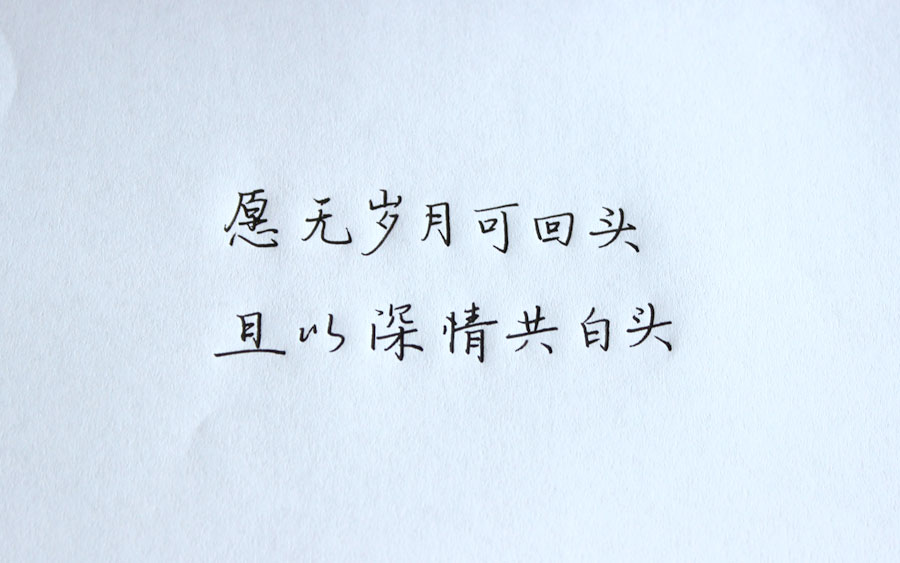 愿无岁月可回头
且以深情共白头